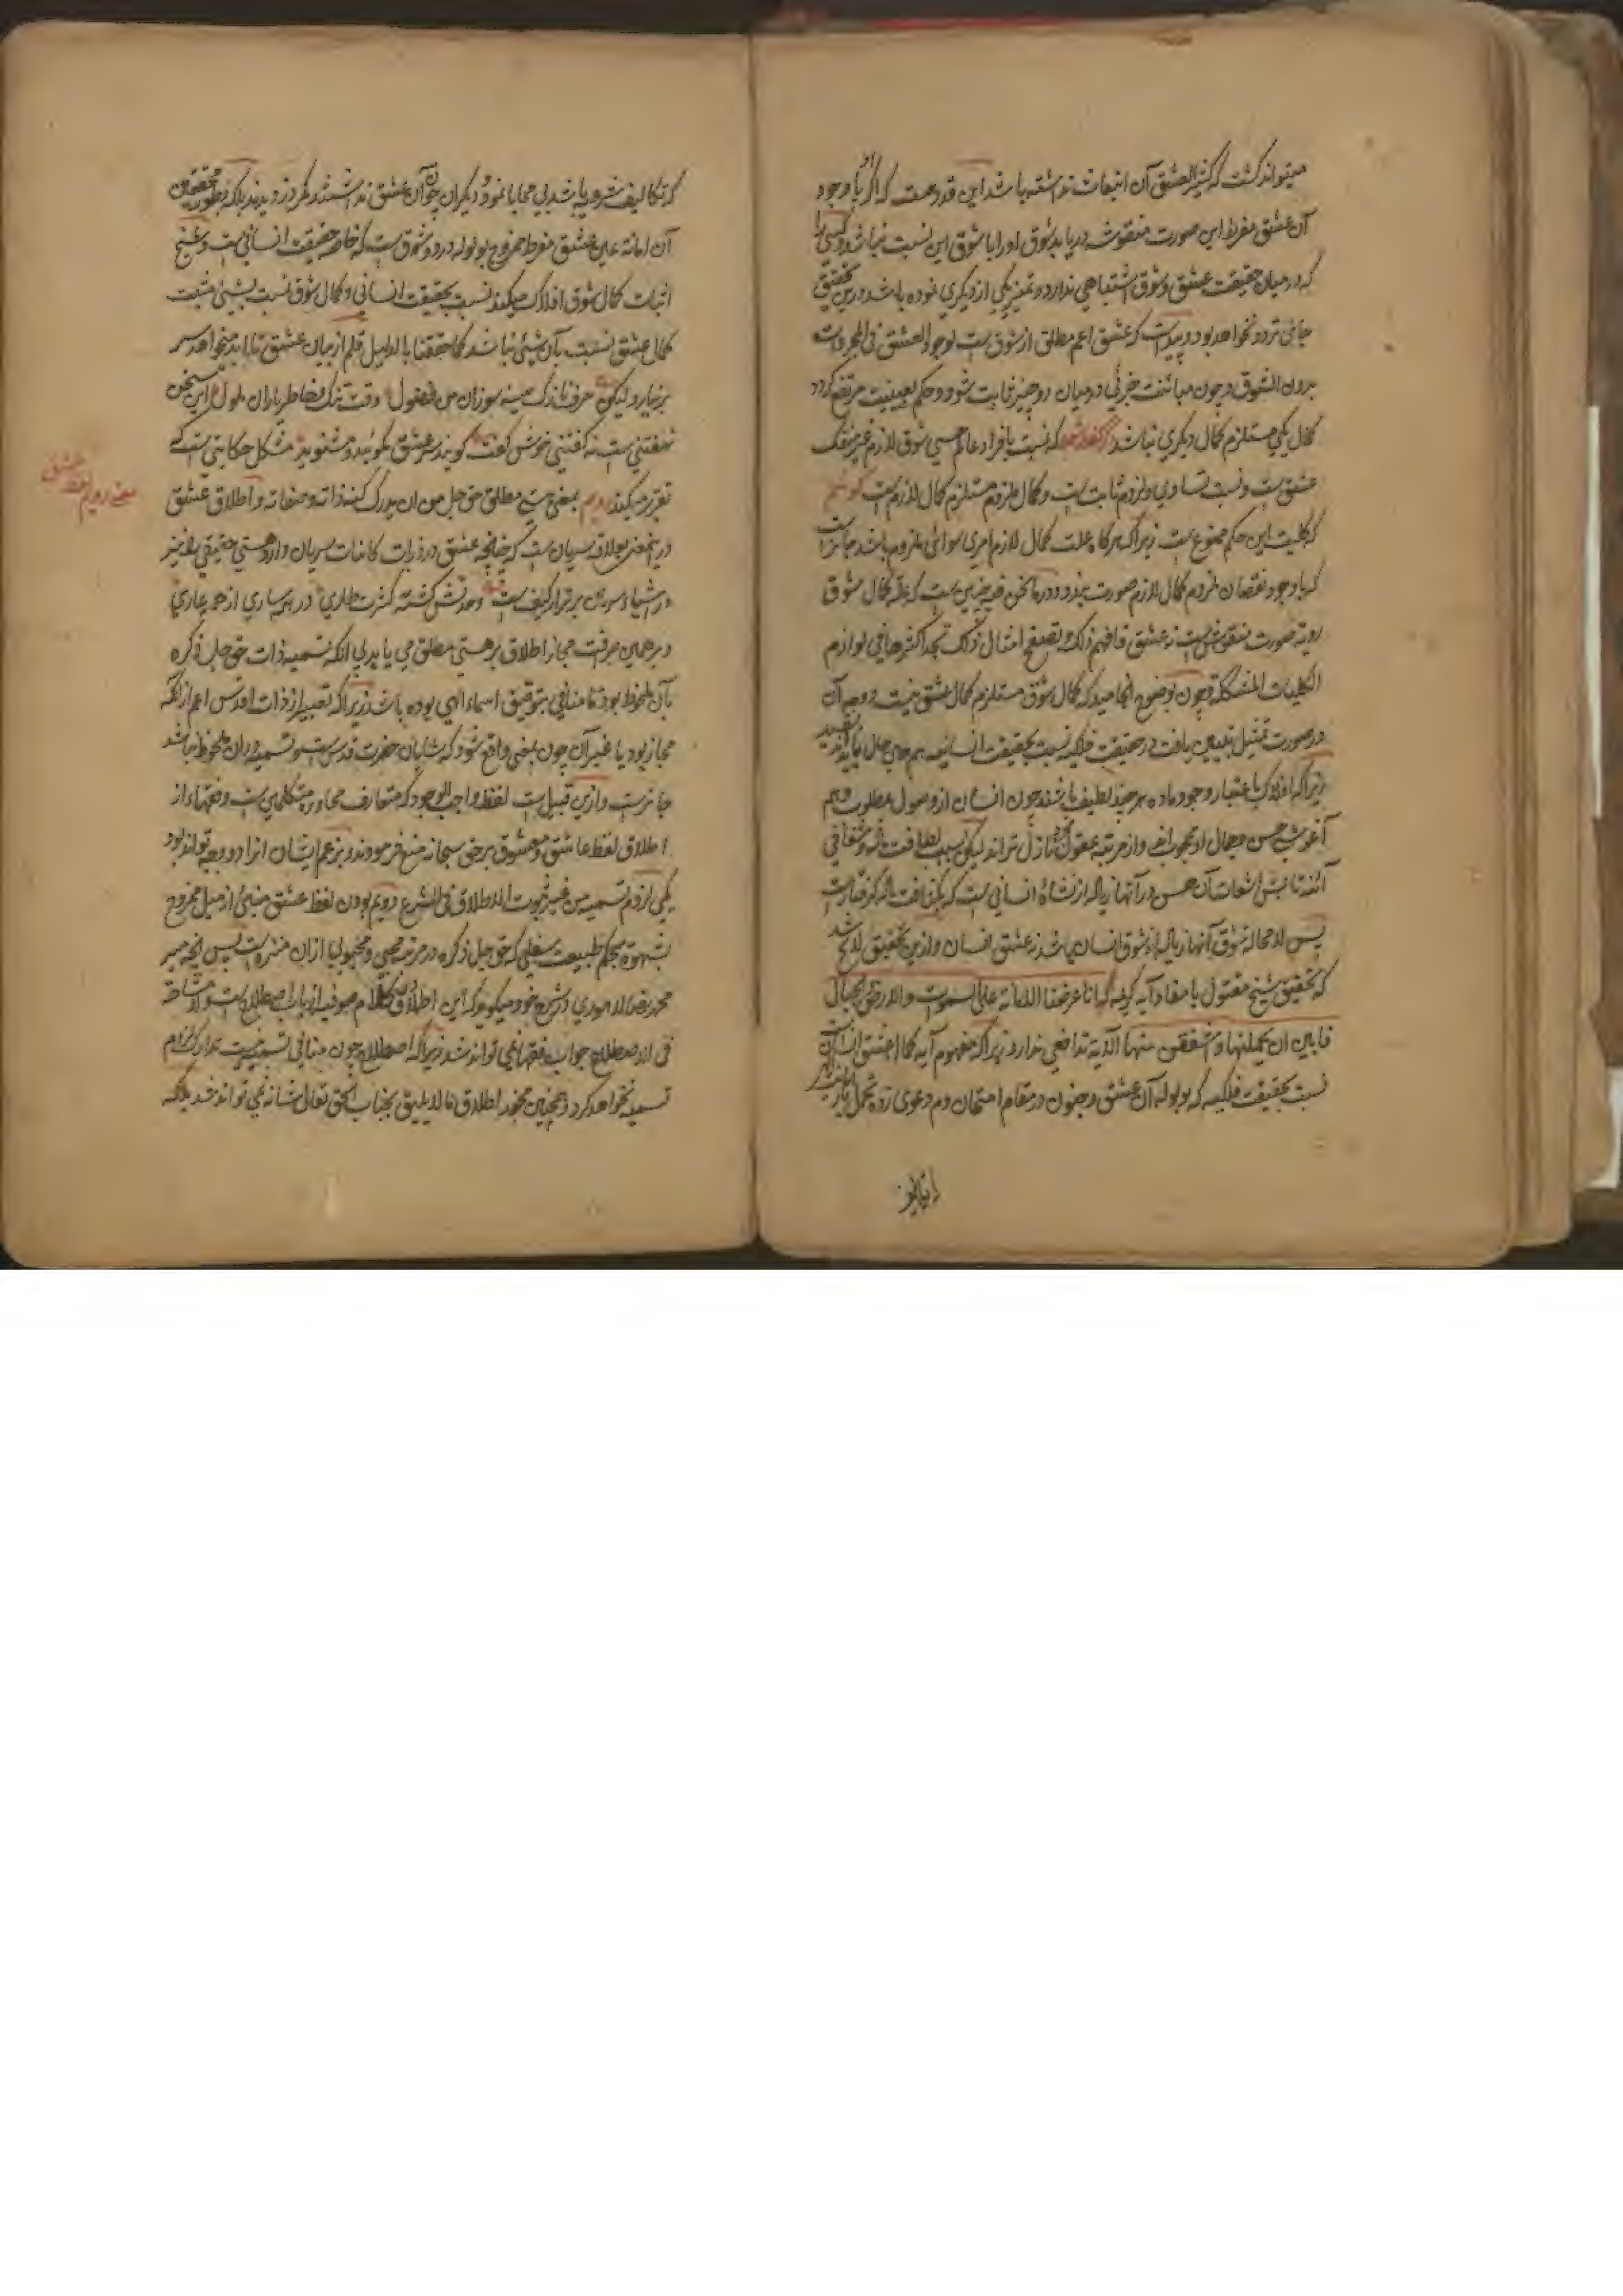 میتواند گشت که کثیر العشق آن انبعاث نداشته باشد این قدر هست که اگر با وجود
آن عشق مفرط این صورت منقوشه دریابد شوق او را با شوق این نسبت نباشد و کسی را
که در میان حقیقت عشق و شوق اشتباهی ندارد و تمیز یکی از دیگری نموده باشد درین تحقیق
جائی تردد نخواهد بود و پیداست که عشق اعم مطلق از شوق ست لوجود العشق فی المجردات
بدون الشوق و چون مبائنت جزئی در میان دو چیز ثابت شود و حکم بعینیت مرتفع گردد
کمال یکی مستلزم کمال دیگری نباشد اگر گفته شود که نسبت بافراد عالم حسی شوق لازم غیر منفک
عشق ست و نسبت تساوی و لزوم ثابت ست و کمال ملزوم مستلزم کمال لازم ست گویم
که کلیت این حکم ممنوع ست زیرا که هرگاه علت کمال لازم امری سوائی ملزوم باشد جائز است
که با وجود نقصان ملزوم کمال لازم صورت بندد و در ما نحن فیه چنین ست که علة کمال شوق
رویة صورت منقوش ست نه عشق فافهم ذلک و تصفح امثال ذلک تجد اکثرها فی لوازم
الکلیات المتشککة و چون بوضوح انجامید که کمال شوق مستلزم کمال عشق نیست و وجه آن
در صورت تمثیل تبیین یافت در حقیقت فلکیه نسبت بحقیقت انسانیه هم همین حال باید فهمید
زیرا که افلاک باعتبار وجود ماده هر چند لطیف باشند چون انسان از وصول مطلوب و هم
آغوشی حسن و جمال او مهجور اند و از مرتبه عقول نازل تر اند لیکن بسبب لطافت ماده و شفافی
آئنه تابش اشعات آن حسن در آنها زیاده از نشاة انسانی ست که بکثافت ماده گرفتار است
پس لا محاله شوق آنها زیاده از شوق انسان باشد نه عشق انسان و ازین تحقیق لائح شد
که تحقیق شیخ مقتول با مفاد آیه کریمه انا عرضنا الامانة علی السموات والارض والجبال
فابین ان یحملنها و اشفقن منها الآیة تدافعی ندارد زیرا که مفهوم آیه کمال عشق انسان
نسبت بحقیقت فلکیه که بولوله آن عشق و جنون در مقام امتحان دم دعوی زده تحمل بار
که تکالیف شرعیه باشد بی محابا نمود و دیگران چون آن عشق نداشتند
آن امانة عین عشق مفرط ممزوج بولوله درد و شوق ست که خاصه حقیقت انسانی ست و شیخ
اثبات کمال شوق افلاک میکند نسبت بحقیقت انسانی و کمال شوق نسبت بشیئ مثبت
کمال عشق نسبت بآن شیئ نباشد کما حققنا بالدلیل قلم از بیان عشق
وقت تنگ و خاطر یاران ملول این سخن
نهفتنی ست نه گفتنی خوش گفت گویند سر عشق مگوئید و مشنوید مشکل حکایتی ست که
تقریر میکنند دویم بمعنی هستی مطلق حق جل من ان یدرک کنه ذاته و صفاته و اطلاق عشق
درین معنی بعلاقه سریان ست که چنانچه عشق در ذرات کائنات سریان دارد هستی حقیقی را نیز
در اشیا سریان بی کیف ست وحدتش گشته کثرت طاری در همه ساری از همه عاری
و بر همین معرفت مجازا اطلاق بر هستی مطلق می یابد بی آنکه تسمیه ذات حق جل ذکره
بآن ملحوظ بود تا منافی بتوقیف اسماء الهی بوده باشد زیرا که تعبیر از ذات اقدس اعم از آنکه
مجاز بود یا غیر آن چون بلفظی واقع شود که شایان حضرت قدس ست و تسمیه در آن ملحوظ نباشد
جائز ست و ازین قبیل ست لفظ واجب الوجود که متعارف محاوره متکلمین ست و فقهاء از
اطلاق لفظ عاشق و معشوق بر حق سبحانه منع فرمودند و بزعم ایشان آنرا دو وجه تواند بود
یکی لزوم تسمیه من غیر ثبوت الاطلاق فی الشرع دویم بودن لفظ عشق منبئ از میل ممزوج
بشهوة بحکم طبیعت سفلی که حق جل ذکره در مرتبه محبی و محبوبی از آن منزه است پس آنچه میر
محمد رضا لاهوری در شرح خود میگوید که این اطلاق در کلام صوفیه از باب اصطلاح ست و لا مشاحة
فی الاصطلاح جواب فقها نمی تواند شد زیرا که اصطلاح چون منافی تسمیه نیست تدارک لزوم
تسمیه نخواهد کرد و همچنین مجوز اطلاق ما لا یلیق بجناب الحق تعالی شانه نمی تواند شد بلکه
معنی دویم لفظ عشق